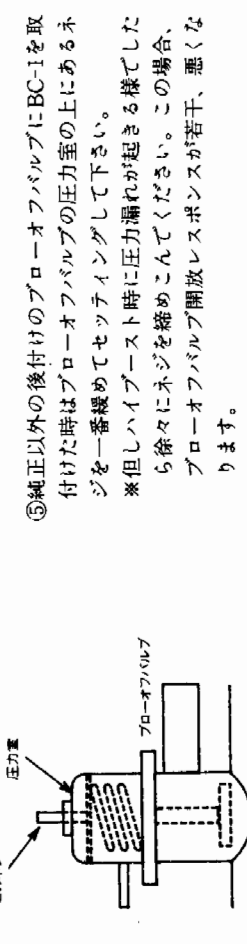 ⑤純正以外の後付けのブローオフバルブにBC-1を取
付けた時はブローオフバルブの圧力室の上にあるネ
ジを一番緩めてセッティングして下さい。
※但しハイブースト時に圧力漏れが起きる様でした
ら徐々にネジを締めこんでください。この場合、
ブローオフバルブ開放レスポンスが若干、悪くな
ります。
圧力室
ブローオフバルブ